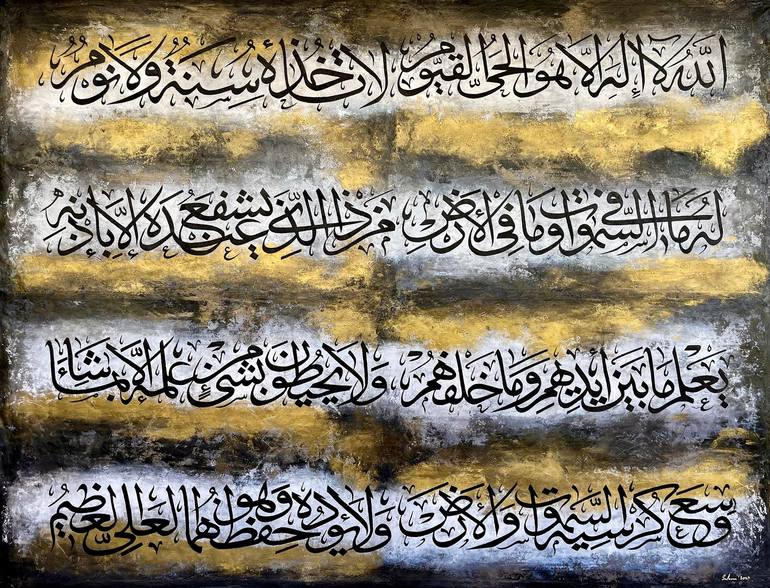 اللَّهُ لَا إِلَٰهَ إِلَّا هُوَ الْحَيُّ الْقَيُّومُ لَا تَأْخُذُهُ سِنَةٌ وَلَا نَوْمٌ
لَهُ مَا فِي السَّمَوَاتِ وَمَا فِي الْأَرْضِ مَنْ ذَا الَّذِي يَشْفَعُ عِنْدَهُ إِلَّا بِإِذْنِهِ
يَعْلَمُ مَا بَيْنَ أَيْدِيهِمْ وَمَا خَلْفَهُمْ وَلَا يُحِيطُونَ بِشَيْءٍ مِنْ عِلْمِهِ إِلَّا بِمَا شَاءَ
وَسِعَ كُرْسِيُّهُ السَّمَوَاتِ وَالْأَرْضَ وَلَا يَئُودُهُ حِفْظُهُمَا وَهُوَ الْعَلِيُّ الْعَظِيمُ